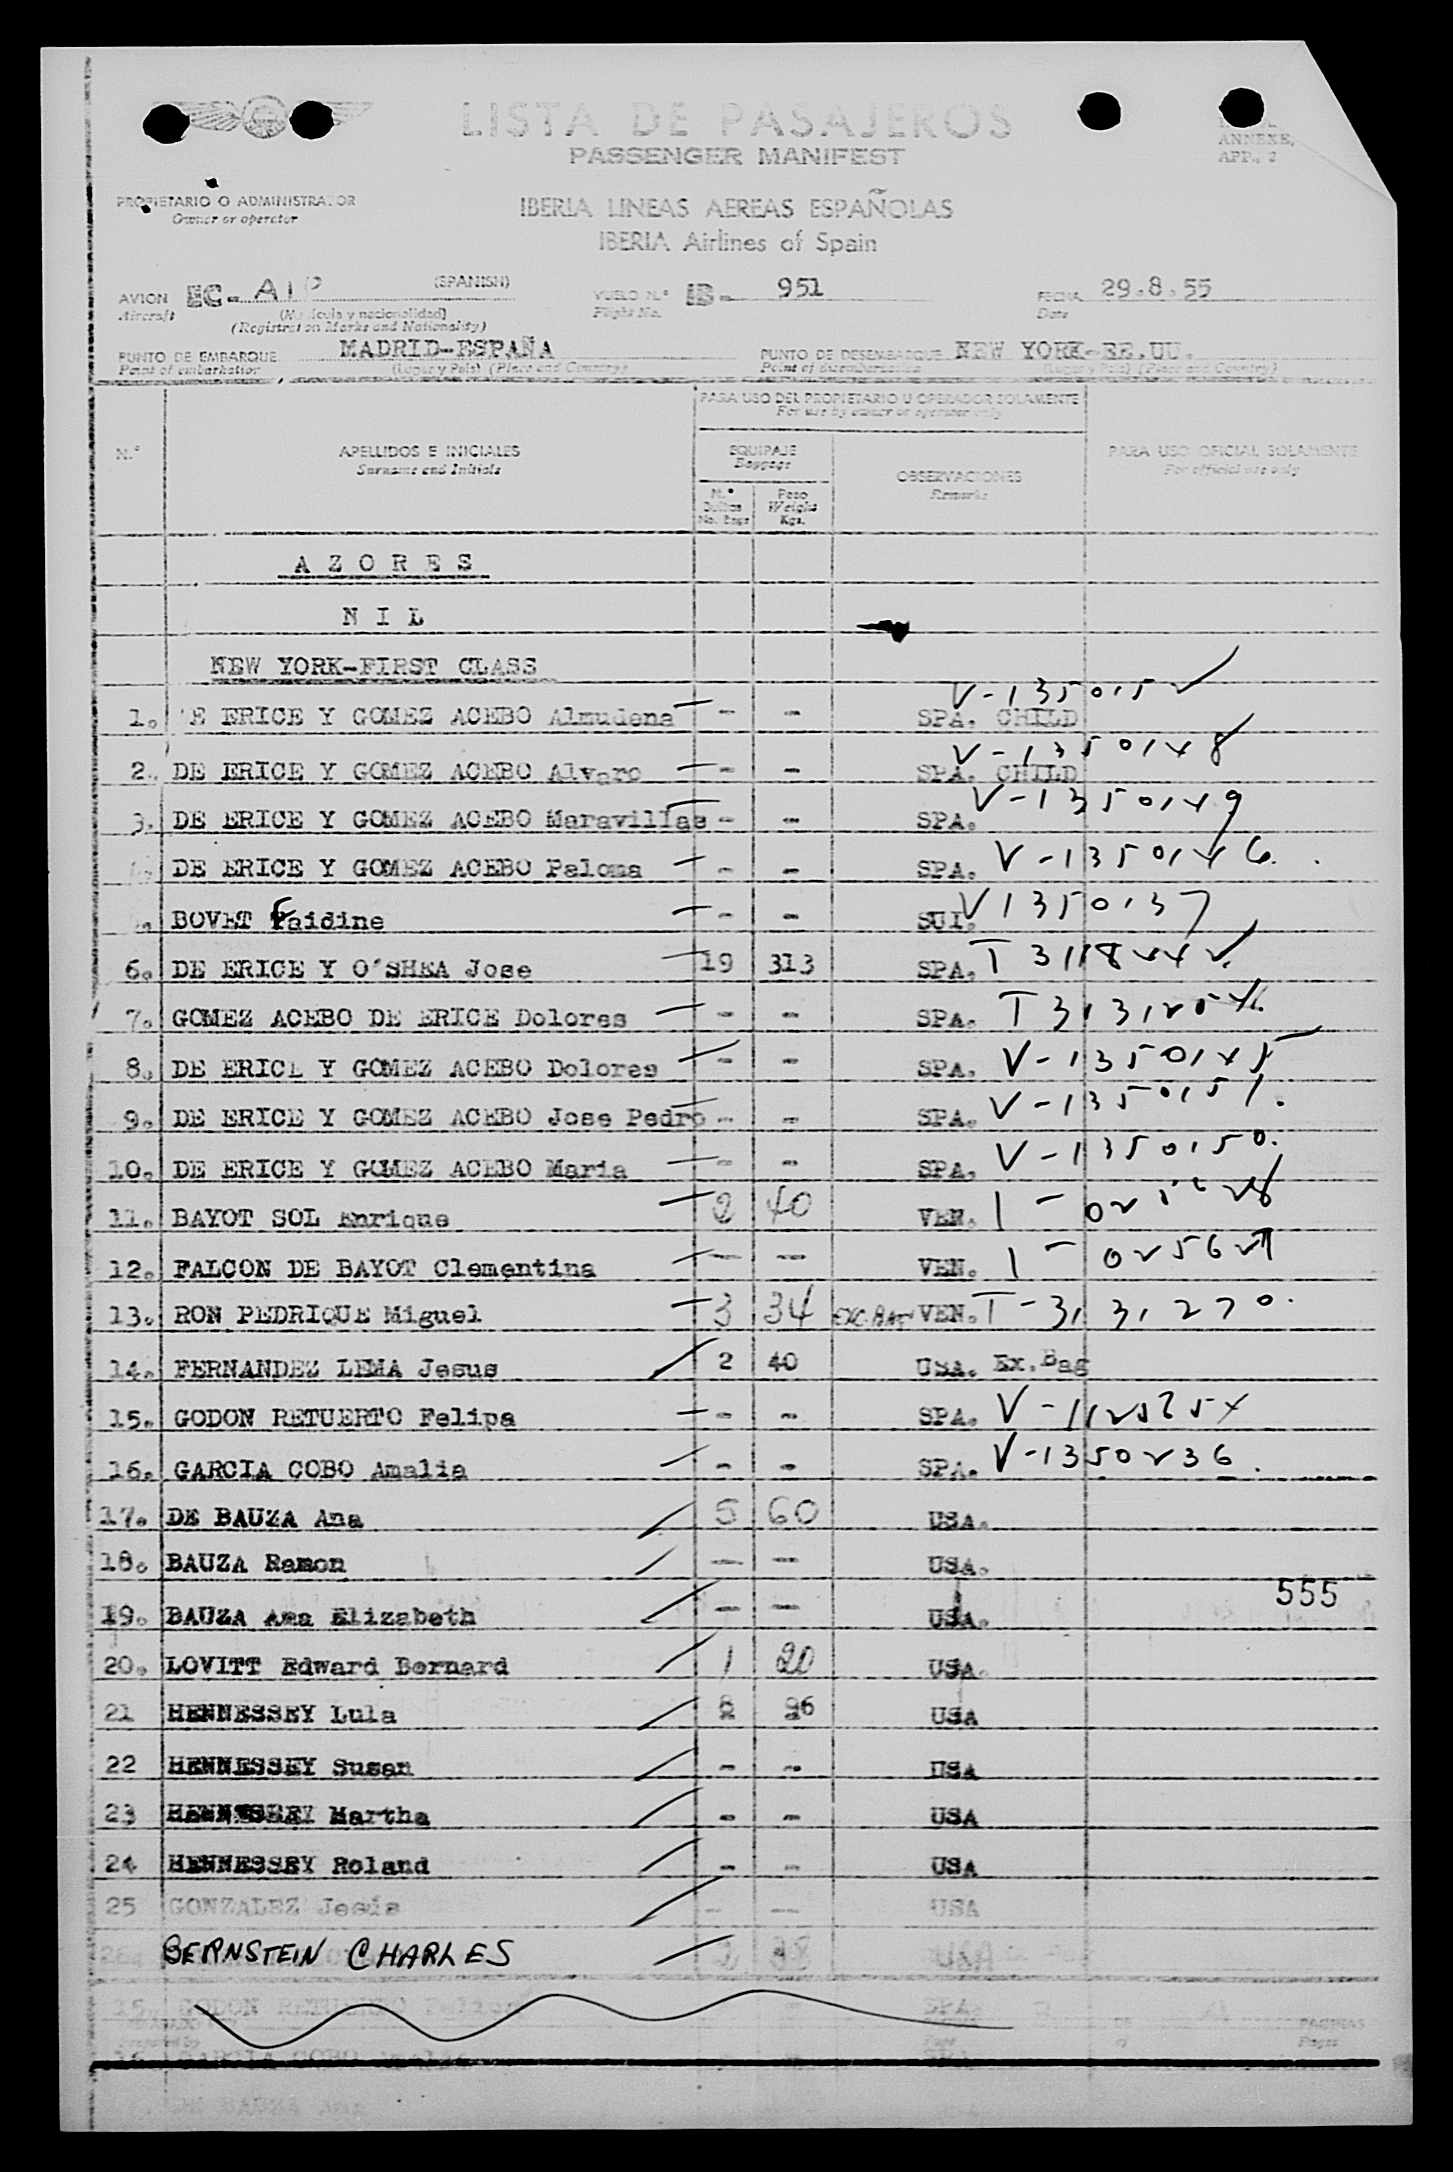 LISTA DE PASAJEROS
PASSENGER MANIFEST
ANNEXE,
APP., 2
PROPIETARIO O ADMINISTRADOR
Owner or operator
IBERIA LINEAS AEREAS ESPAÑOLAS
IBERIA Airlines of Spain
AVION EC-AIP (SPANISH) VUELO N.º IB- 951 FECHA 29.8.55
Aircraft (Matrícula y nacionalidad) Flight No. Date
(Registration Marks and Nationality)
PUNTO DE EMBARQUE MADRID-ESPAÑA PUNTO DE DESEMBARQUE NEW YORK-EE.UU.
Point of embarkation (Lugar y País) (Place and Country) Point of disembarkation (Lugar y País) (Place and Country)
PARA USO DEL PROPIETARIO U OPERADOR SOLAMENTE
For use by owner or operator only
N.º APELLIDOS E INICIALES EQUIPAJE PARA USO OFICIAL SOLAMENTE
Surname and Initials Baggage For official use only
OBSERVACIONES
Remarks
N.º Bultos No. Bags Peso Weight Kgs.
AZORES
NIL
NEW YORK-FIRST CLASS
1. E ERICE Y GOMEZ ACEBO Almudena - - SPA. CHILD V-1350152
2. DE ERICE Y GOMEZ ACEBO Alvaro - - SPA. CHILD V-1350148
3. DE ERICE Y GOMEZ ACEBO Maravillas - - SPA. V-1350149
DE ERICE Y GOMEZ ACEBO Paloma - - SPA. V-1350146
BOVET Faidine - - SUI. V1350137
6. DE ERICE Y O'SHEA Jose 19 313 SPA. T 3118242
7. GOMEZ ACEBO DE ERICE Dolores - - SPA. T 3131254
8. DE ERICE Y GOMEZ ACEBO Dolores - - SPA. V-1350145
9. DE ERICE Y GOMEZ ACEBO Jose Pedro - - SPA. V-1350151.
10. DE ERICE Y GOMEZ ACEBO Maria - - SPA. V-1350150.
11. BAYOT SOL Enrique 2 40 VEN. 1-025628
12. FALCON DE BAYOT Clementina - - VEN. 1-025627
13. RON PEDRIQUE Miguel 3 34 EXC.BAG VEN. T-3131270.
14. FERNANDEZ LEMA Jesus 2 40 USA. Ex.Bag
15. GODON RETUERTO Felipa - - SPA.
16. GARCIA COBO Amalia - - SPA. V-1350236.
17. DE BAUZA Ana 5 60 USA.
18. BAUZA Ramon - - USA.
555
19. BAUZA Ana Elizabeth - - USA.
20. LOVITT Edward Bernard 1 20 USA.
21 HENNESSEY Lula 8 96 USA
22 HENNESSEY Susan - - USA
23 HENNESSEY Martha - - USA
24 HENNESSEY Roland - - USA
25 GONZALEZ Jesús - - USA
26. BERNSTEIN CHARLES 2 38 USA
15. GODON RETUERTO Felipa - SPA.
DE PAGINAS
of Pages
16 GARCIA COBO Amalia
DE BAUZA Ana